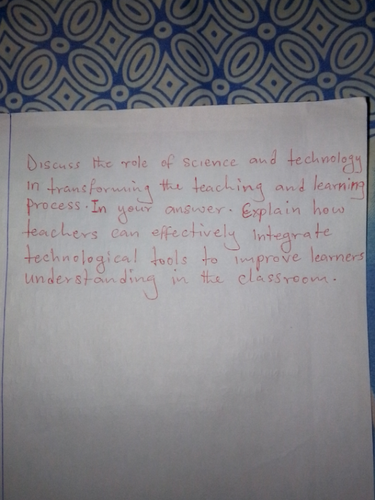 Discuss the role of science and technology
in transforming the teaching and learning
process. In your answer. Explain how
teachers can effectively integrate
technological tools to improve learners
understanding in the classroom.